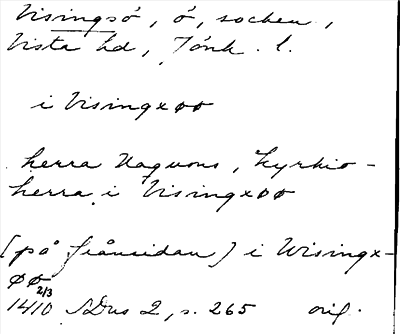 Visingsö, ö, socken,
Vista hd, Jönk. l.
i Visingxøø
herra Haquons, kyrkio-
herra i Visingxøø
(på frånsidan) i Wisingx-
øø
2/3
1410 SDns 2, s. 265 orig.